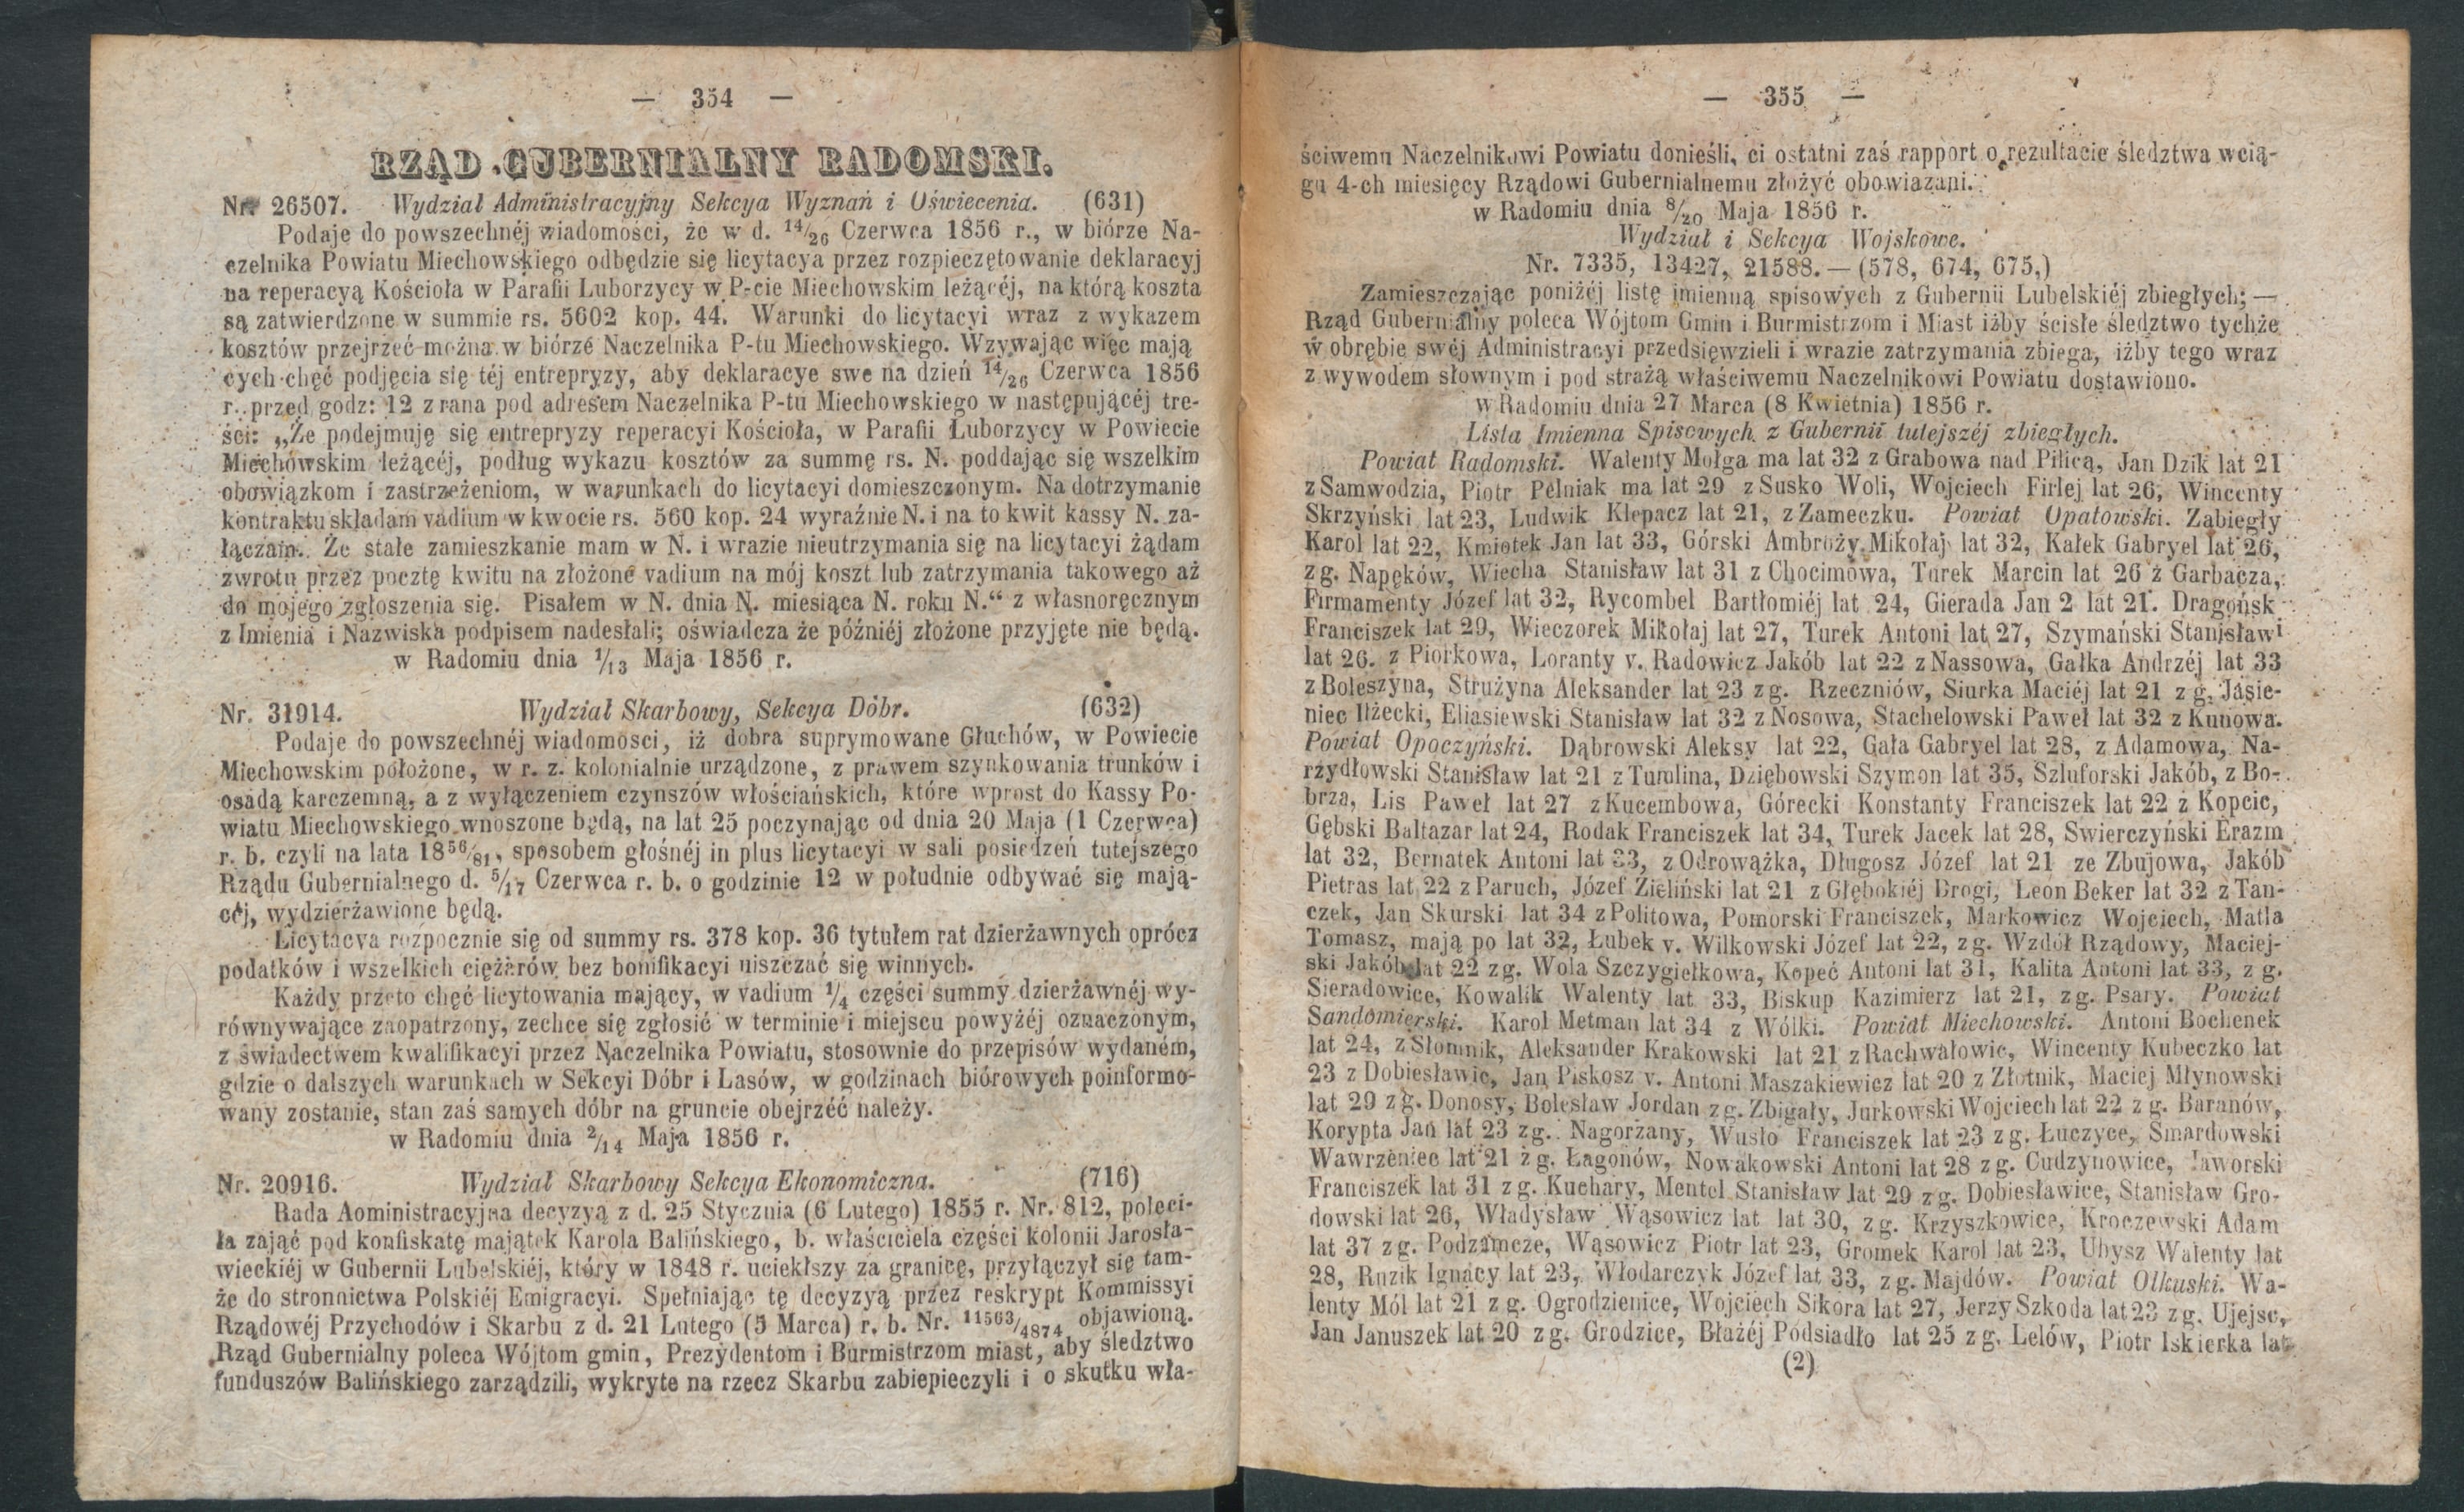 — 354 —
RZĄD GUBERNIALNY RADOMSKI.
Nr. 26507. Wydział Administracyjny Sekcya Wyznań i Oświecenia. (631)
Podaje do powszechnéj wiadomości, że w d. 14/26 Czerwca 1856 r., w biórze Na-
czelnika Powiatu Miechowskiego odbędzie się licytacya przez rozpieczętowanie deklaracyj
na reperacyą Kościoła w Parafii Luborzycy w P-cie Miechowskim leżącéj, na którą koszta
są zatwierdzone w summie rs. 5602 kop. 44. Warunki do licytacyi wraz z wykazem
kosztów przejrzeć można w biórze Naczelnika P-tu Miechowskiego. Wzywając więc mają
cych chęć podjęcia się téj entrepryzy, aby deklaracye swe na dzień 14/26 Czerwca 1856
r. przed godz: 12 z rana pod adresem Naczelnika P-tu Miechowskiego w następującéj tre-
ści: „Że podejmuję się entrepryzy reperacyi Kościoła, w Parafii Luborzycy w Powiecie
Miechówskim leżącéj, podług wykazu kosztów za summę rs. N. poddając się wszelkim
obowiązkom i zastrzeżeniom, w warunkach do licytacyi domieszczonym. Na dotrzymanie
kontraktu składam vadium w kwocie rs. 560 kop. 24 wyraźnie N. i na to kwit kassy N. za-
łączam. Że stałe zamieszkanie mam w N. i wrazie nieutrzymania się na licytacyi żądam
zwrotu przez pocztę kwitu na złożone vadium na mój koszt lub zatrzymania takowego aż
do mojego zgłoszenia się. Pisałem w N. dnia N. miesiąca N. roku N.“ z własnoręcznym
z Imienia i Nazwiska podpisem nadesłali; oświadcza że późniéj złożone przyjęte nie będą.
w Radomiu dnia 1/13 Maja 1856 r.
Nr. 31914. Wydział Skarbowy, Sekcya Dóbr. (632)
Podaje do powszechnéj wiadomosci, iż dobra suprymowane Głuchów, w Powiecie
Miechowskim położone, w r. z. kolonialnie urządzone, z prawem szynkowania trunków i
osadą karczemną, a z wyłączeniem czynszów włościańskich, które wprost do Kassy Po-
wiatu Miechowskiego wnoszone będą, na lat 25 poczynając od dnia 20 Maja (1 Czerwca)
r. b. czyli na lata 1856/81, sposobem głośnéj in plus licytacyi w sali posiedzeń tutejszego
Rządu Gubernialnego d. 5/17 Czerwca r. b. o godzinie 12 w południe odbywać się mają-
céj, wydzierżawione będą.
Licytacya rozpocznie się od summy rs. 378 kop. 36 tytułem rat dzierżawnych oprócz
podatków i wszelkich ciężarów bez bonifikacyi uiszczać się winnych.
Każdy przeto chęć licytowania mający, w vadium 1/4 części summy dzierżawnéj wy-
równywające zaopatrzony, zechce się zgłosić w terminie i miejscu powyżéj oznaczonym,
z świadectwem kwalifikacyi przez Naczelnika Powiatu, stosownie do przepisów wydaném,
gdzie o dalszych warunkach w Sekcyi Dóbr i Lasów, w godzinach biórowych poinformo-
wany zostanie, stan zaś samych dóbr na gruncie obejrzéć należy.
w Radomiu dnia 2/14 Maja 1856 r.
Nr. 20916. Wydział Skarbowy Sekcya Ekonomiczna. (716)
Rada Aoministracyjna decyzyą z d. 25 Stycznia (6 Lutego) 1855 r. Nr. 812, poleci-
ła zająć pod konfiskatę majątek Karola Balińskiego, b. właściciela części kolonii Jarosła-
wieckiéj w Gubernii Lubelskiéj, który w 1848 r. uciekłszy za granicę, przyłączył się tam-
że do stronnictwa Polskiéj Emigracyi. Spełniając tę decyzyą przez reskrypt Kommissyi
Rządowéj Przychodów i Skarbu z d. 21 Lutego (5 Marca) r. b. Nr. 11563/4874 objawioną.
Rząd Gubernialny poleca Wójtom gmin, Prezydentom i Burmistrzom miast, aby śledztwo
funduszów Balińskiego zarządzili, wykryte na rzecz Skarbu zabiepieczyli i o skutku wła-
— 355 —
ściwemu Naczelnikowi Powiatu donieśli, ci ostatni zaś rapport o rezultacie śledztwa wcią-
gu 4-ch miesięcy Rządowi Gubernialnemu złożyć obowiazani.
w Radomiu dnia 8/20 Maja 1856 r.
Wydział i Sekcya Wojskowe.
Nr. 7335, 13427, 21588. — (578, 674, 675,)
Zamieszczając poniżéj listę imienną spisowych z Gubernii Lubelskiéj zbiegłych; —
Rząd Gubernialny poleca Wójtom Gmin i Burmistrzom i Miast iżby ścisłe śledztwo tychże
w obrębie swéj Administracyi przedsięwzieli i wrazie zatrzymania zbiega, iżby tego wraz
z wywodem słownym i pod strażą właściwemu Naczelnikowi Powiatu dostawiono.
w Radomiu dnia 27 Marca (8 Kwietnia) 1856 r.
Lista Imienna Spisowych z Gubernii tutejszéj zbiegłych.
Powiat Radomski. Walenty Mołga ma lat 32 z Grabowa nad Pilicą, Jan Dzik lat 21
z Samwodzia, Piotr Pelniak ma lat 29 z Susko Woli, Wojciech Firlej lat 26, Wincenty
Skrzyński lat 23, Ludwik Klepacz lat 21, z Zameczku. Powiat Opatowski. Ząbiegły
Karol lat 22, Kmiotek Jan lat 33, Górski Ambroży Mikołaj lat 32, Kałek Gabryel lat 26,
z g. Napęków, Wiecha Stanisław lat 31 z Chocimówa, Turek Marcin lat 26 z Garbacza,
Firmamenty Józef lat 32, Rycombel Bartłomiéj lat 24, Gierada Jan 2 lat 21. Dragońsk
Franciszek lat 29, Wieczorek Mikołaj lat 27, Turek Antoni lat 27, Szymański Stanisławi
lat 26. z Piorkowa, Loranty v. Radowicz Jakób lat 22 z Nassowa, Gałka Andrzéj lat 33
z Boleszyna, Strużyna Aleksander lat 23 z g. Rzeczniów, Siurka Maciéj lat 21 z g. Jasie-
niec Iłżecki, Eliasiewski Stanisław lat 32 z Nosowa, Stachelowski Paweł lat 32 z Kunowa.
Powiat Opoczyński. Dąbrowski Aleksy lat 22, Gała Gabryel lat 28, z Adamowa, Na-
rzydłowski Stanisław lat 21 z Tumlina, Dziębowski Szymon lat 35, Szluforski Jakób, z Bo-
brza, Lis Paweł lat 27 z Kucembowa, Górecki Konstanty Franciszek lat 22 z Kopcic,
Gębski Baltazar lat 24, Rodak Franciszek lat 34, Turek Jacek lat 28, Swierczyński Erazm
lat 32, Bernatek Antoni lat 33, z Odrowążka, Długosz Józef lat 21 ze Zbujowa, Jakób
Pietras lat 22 z Paruch, Józef Zieliński lat 21 z Głębokiéj Drogi, Leon Beker lat 32 z Tan-
czek, Jan Skurski lat 34 z Politowa, Pomorski Franciszek, Markowicz Wojciech, Matla
Tomasz, mają po lat 32, Łubek v. Wilkowski Józef lat 22, z g. Wzdół Rządowy, Maciej-
ski Jakób lat 22 z g. Wola Szczygiełkowa, Kopeć Antoni lat 31, Kalita Antoni lat 33, z g.
Sieradowice, Kowalik Walenty lat 33, Biskup Kazimierz lat 21, z g. Psary. Powiat
Sandomierski. Karol Metman lat 34 z Wólki. Powiat Miechowski. Antoni Bochenek
lat 24, z Słomnik, Aleksander Krakowski lat 21 z Rachwałowic, Wincenty Kubeczko lat
23 z Dobiesławic, Jan Piskosz v. Antoni Maszakiewicz lat 20 z Złotnik, Maciej Młynowski
lat 29 z g. Donosy, Bolesław Jordan z g. Zbigały, Jurkowski Wojciech lat 22 z g. Baranów,
Korypta Jan lat 23 z g. Nagorzany, Wusło Franciszek lat 23 z g. Łuczyce, Smardowski
Wawrzeniec lat 21 z g. Łagonów, Nowakowski Antoni lat 28 z g. Cudzynowice, Jaworski
Franciszek lat 31 z g. Kuchary, Mentel Stanisław lat 29 z g. Dobiesławice, Stanisław Gro-
dowski lat 26, Władysław Wąsowicz lat lat 30, z g. Krzyszkowice, Kroczewski Adam
lat 37 z g. Podzamcze, Wąsowicz Piotr lat 23, Gromek Karol lat 23, Ubysz Walenty lat
28, Ruzik Ignacy lat 23, Włodarczyk Józef lat 33, z g. Majdów. Powiat Olkuski. Wa-
lenty Mól lat 21 z g. Ogrodzienice, Wojciech Sikora lat 27, Jerzy Szkoda lat 23 z g. Ujejsc,
Jan Januszek lat 20 z g. Grodzice, Błażéj Podsiadło lat 25 z g. Lelów, Piotr Iskierka lat
(2)